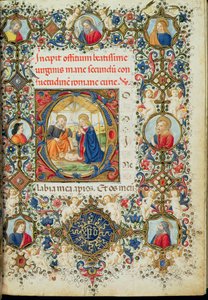 Incipit offitium beatissime
virginis marie secundu͞ con
suetudinē romane curie. 
labia mea apies. Et os meū